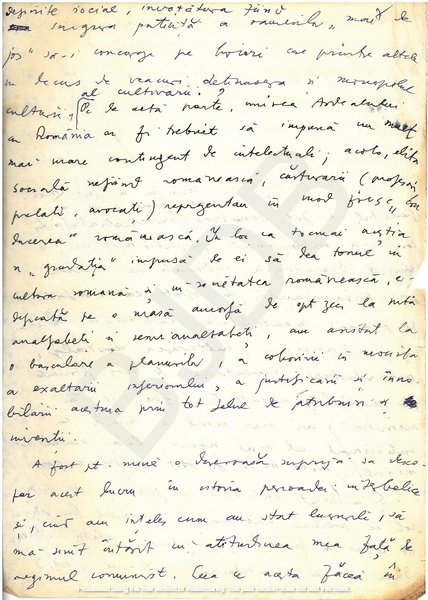 social, învățătura fiind
singura putință a oamenilor „mai de
jos” să-i concureze pe boieri care printre altele
de veacuri, dețineau și monopolul
al cultivării?
culturii, Pe de altă parte, unirea Ardealului
cu România ar fi trebuit să impună un
mai mare contingent de intelectuali; acolo, elita
socială nefiind românească, cărturarii (profesori,
prelați, avocați) reprezentau în mod firesc „con
ducerea” românească. În loc ca tocmai aceștia
„gradația” impusă de ei să dea tonul în
cultura română și în societatea românească,
pe o masă amorfă de optzeci la sută
analfabeți și semianalfabeți, am asistat la
o basculare a planurilor, a coborîrii
a exaltării inferiorului, a justificării și înno-
bilării acestuia prin tot felul de atribuiri și
invenții.
A fost pt. mine o dureroasă surpriză să desco-
păr acest lucru în istoria perioadei interbelice
și, cînd am înțeles cum au stat lucrurile, să
mă simt întărit în atitudinea mea față de
regimul comunist. Ceea ce acesta făcea în